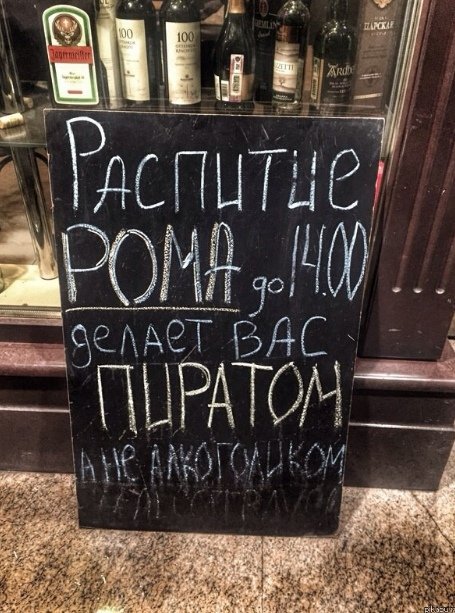 Jägermeister
100
100
ЦАРСКАЯ
РАСПИТИЕ
РОМА до 14.00
делает ВАС
ПИРАТОМ
А НЕ АЛКОГОЛИКОМ
pikabu.ru